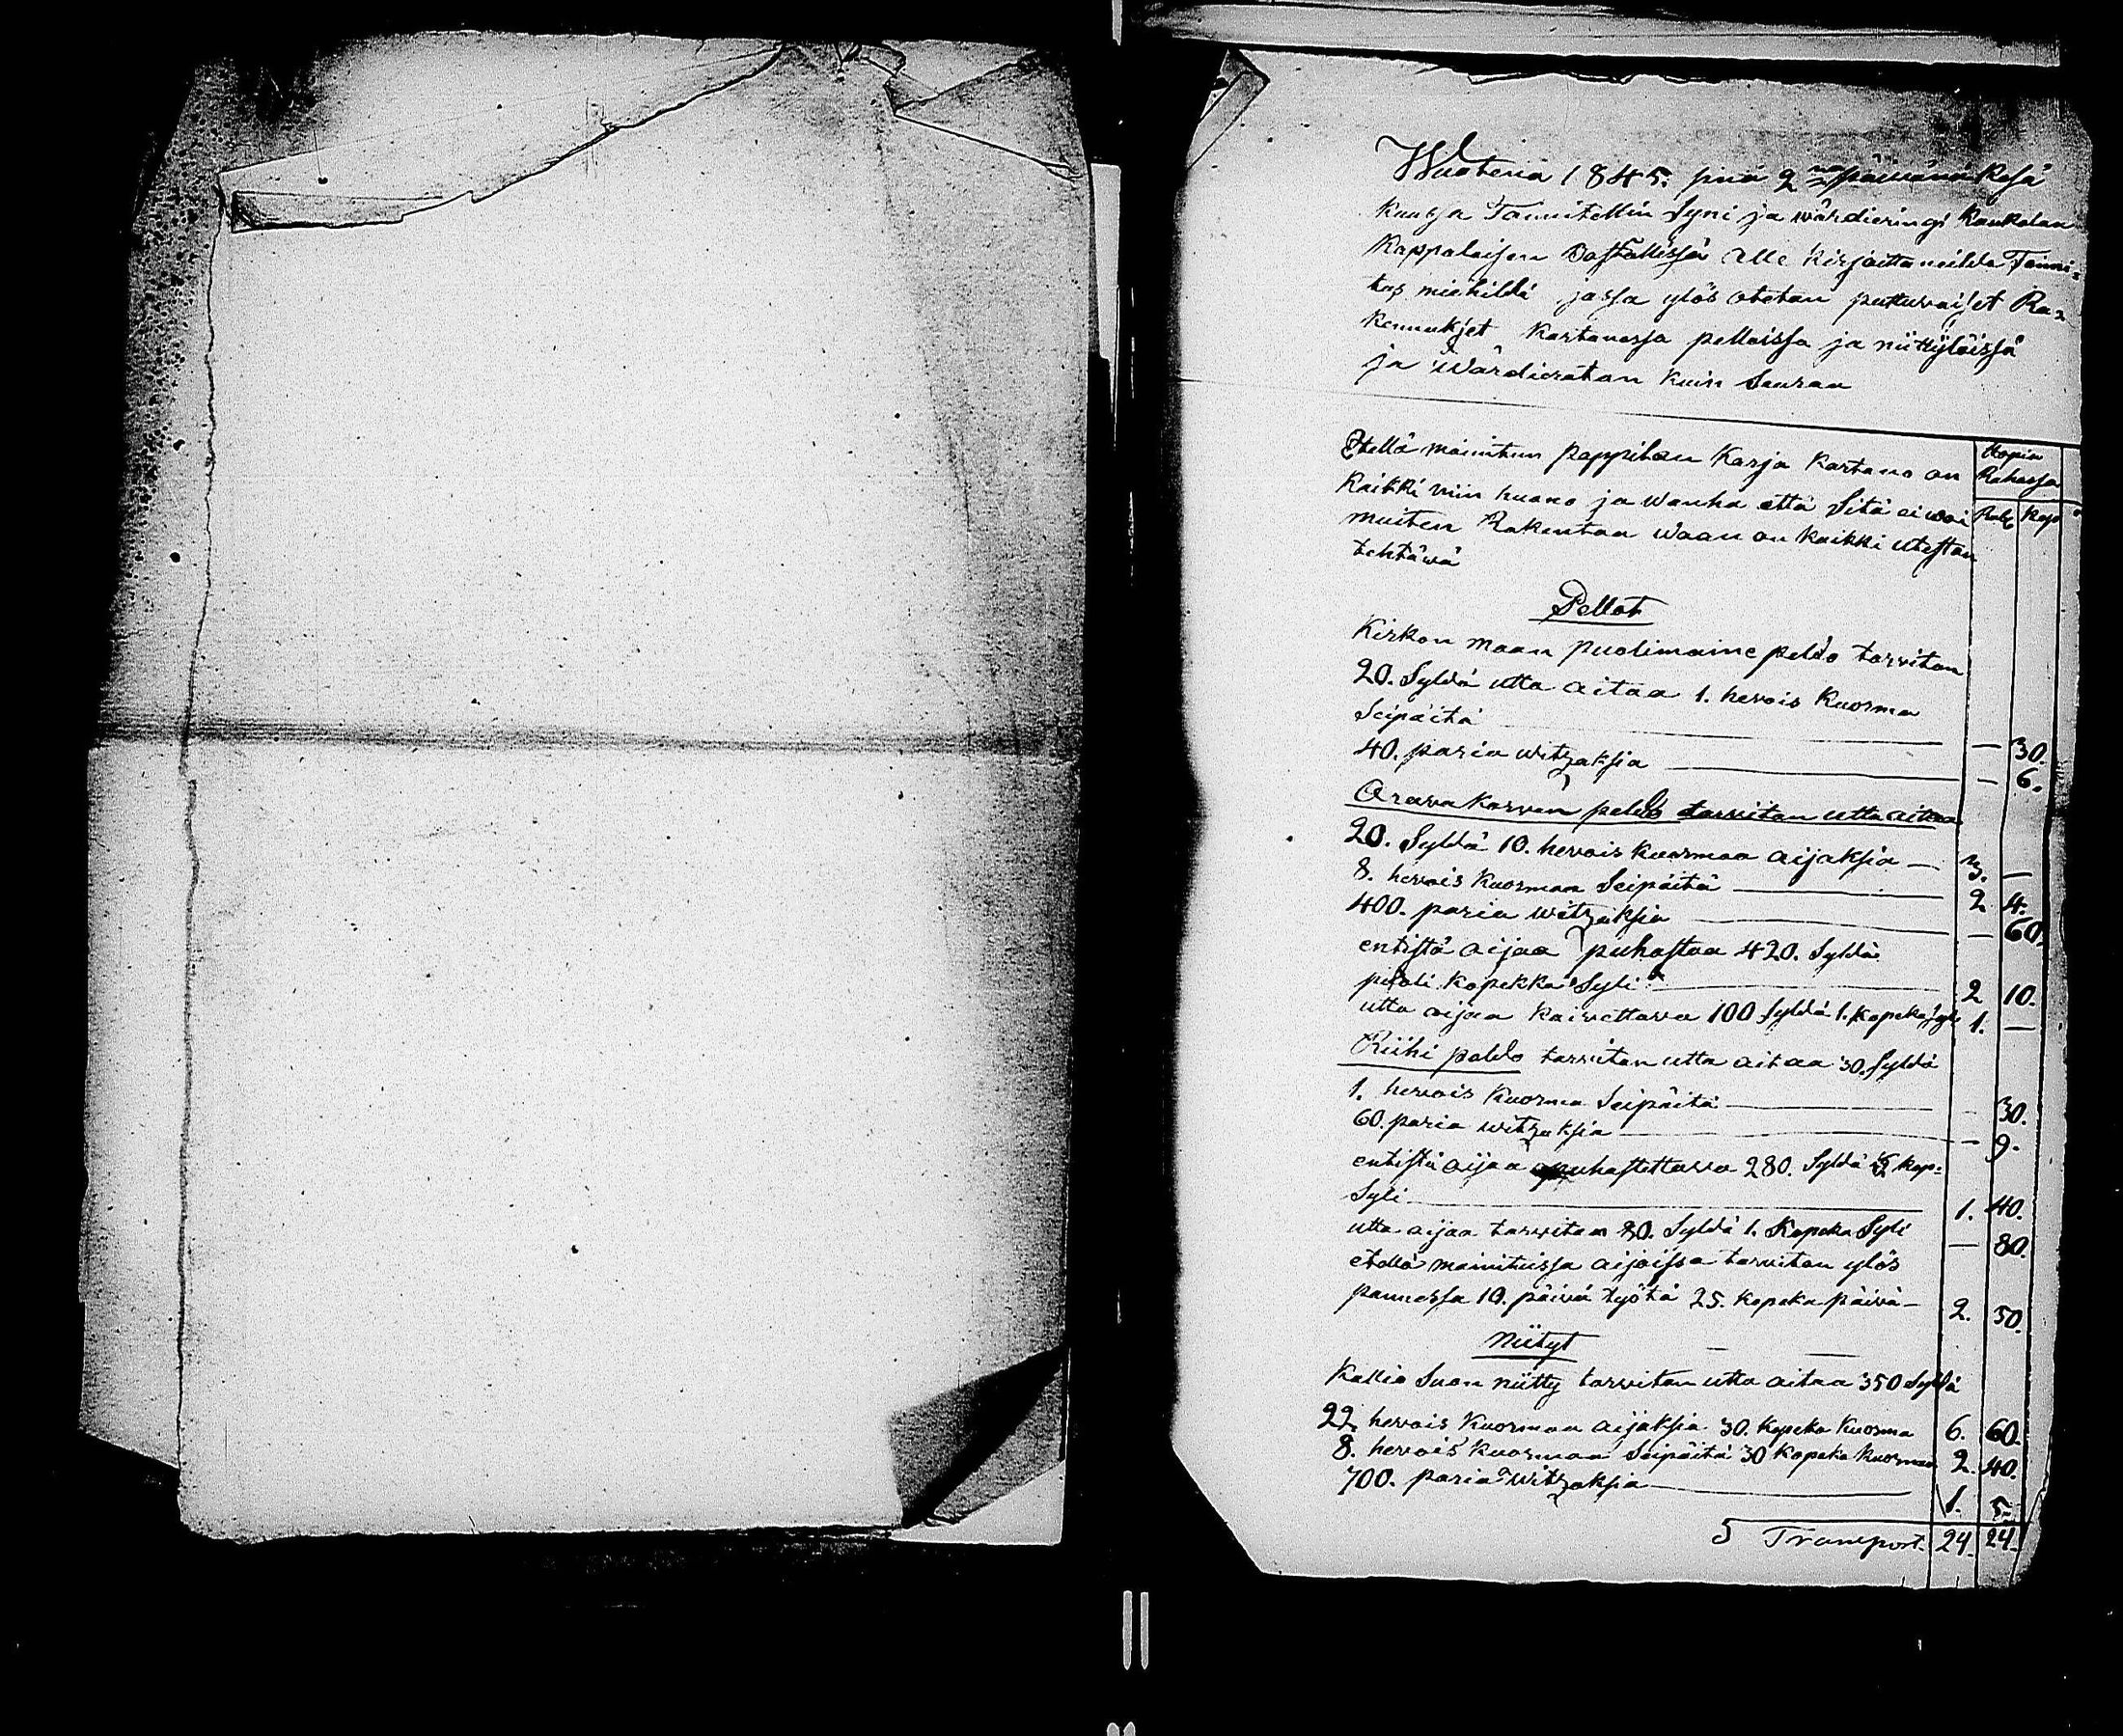 Wuotena 1845. pnä 9 nä päiwänä Kesä
kuusa Toimitettin Syni ja wärdieringi Kaukolan
Kappalaisen Bostellissä alle kirjoittaneilda Toimi=
tus miehildä jossa ylös otetan puttuwaiset Ra=
kennukset Kartanossa pelloissa ja niittylöissä
ja Wärdieratan kuin Seuraa
Etellä mainitun pappilan Karja Kartano on
Kaikki niin huono ja Wanha että Sitä ei woi
muiten Rakentaa Waan on kaikki utestan
tehtäwä
Hopia
Rahassa
Rubl Kop
Pellot
Kirkon maan puolimaine peldo tarvitan
20. Syldä utta aitaa 1. hevois Kuorma
Seipäitä — — 30.
40. paria witzaksia — — 6.
Orava Korvan peldo tarvitan utta aitaa
20. Syldä 10. hevois kuormaa aijaksia — 3. —
8. hevois Kuormaa Seipäitä — 2 4.
400. paria witzaksia — — 60.
entistä aijaa puhastaa 420. Syldä
puoli kopekka Syli — 2 10.
utta aijaa kaivettava 100 Syldä 1. kopeka Syli 1. —
Riihi peldo tarvitan utta aitaa 30. Syldä
1. hevois Kuorma Seipäitä — — 30.
60. paria witzaksia — — 9.
entistä aijaa puhastettava 280. Syldä ½ kop=
Syli — 1. 40.
utta aijaa tarvitan 80. Syldä 1. Kopeka Syli — 80.
etellä mainituissa aijoissa tarvitan ylös
pannessa 10. päivä työtä 25. kopeka päivä — 2. 50.
Niityt
Kallio Suon niitty tarvitan utta aitaa 350 Syldä
22. hevois Kuormaa aijaksia 30. kopeka Kuorma 6. 60.
8. hevois Kuormaa Seipäitä 30 kopeka Kuorma 2. 40.
700. paria witzaksia — 1. 5.
Transport. 24. 24.